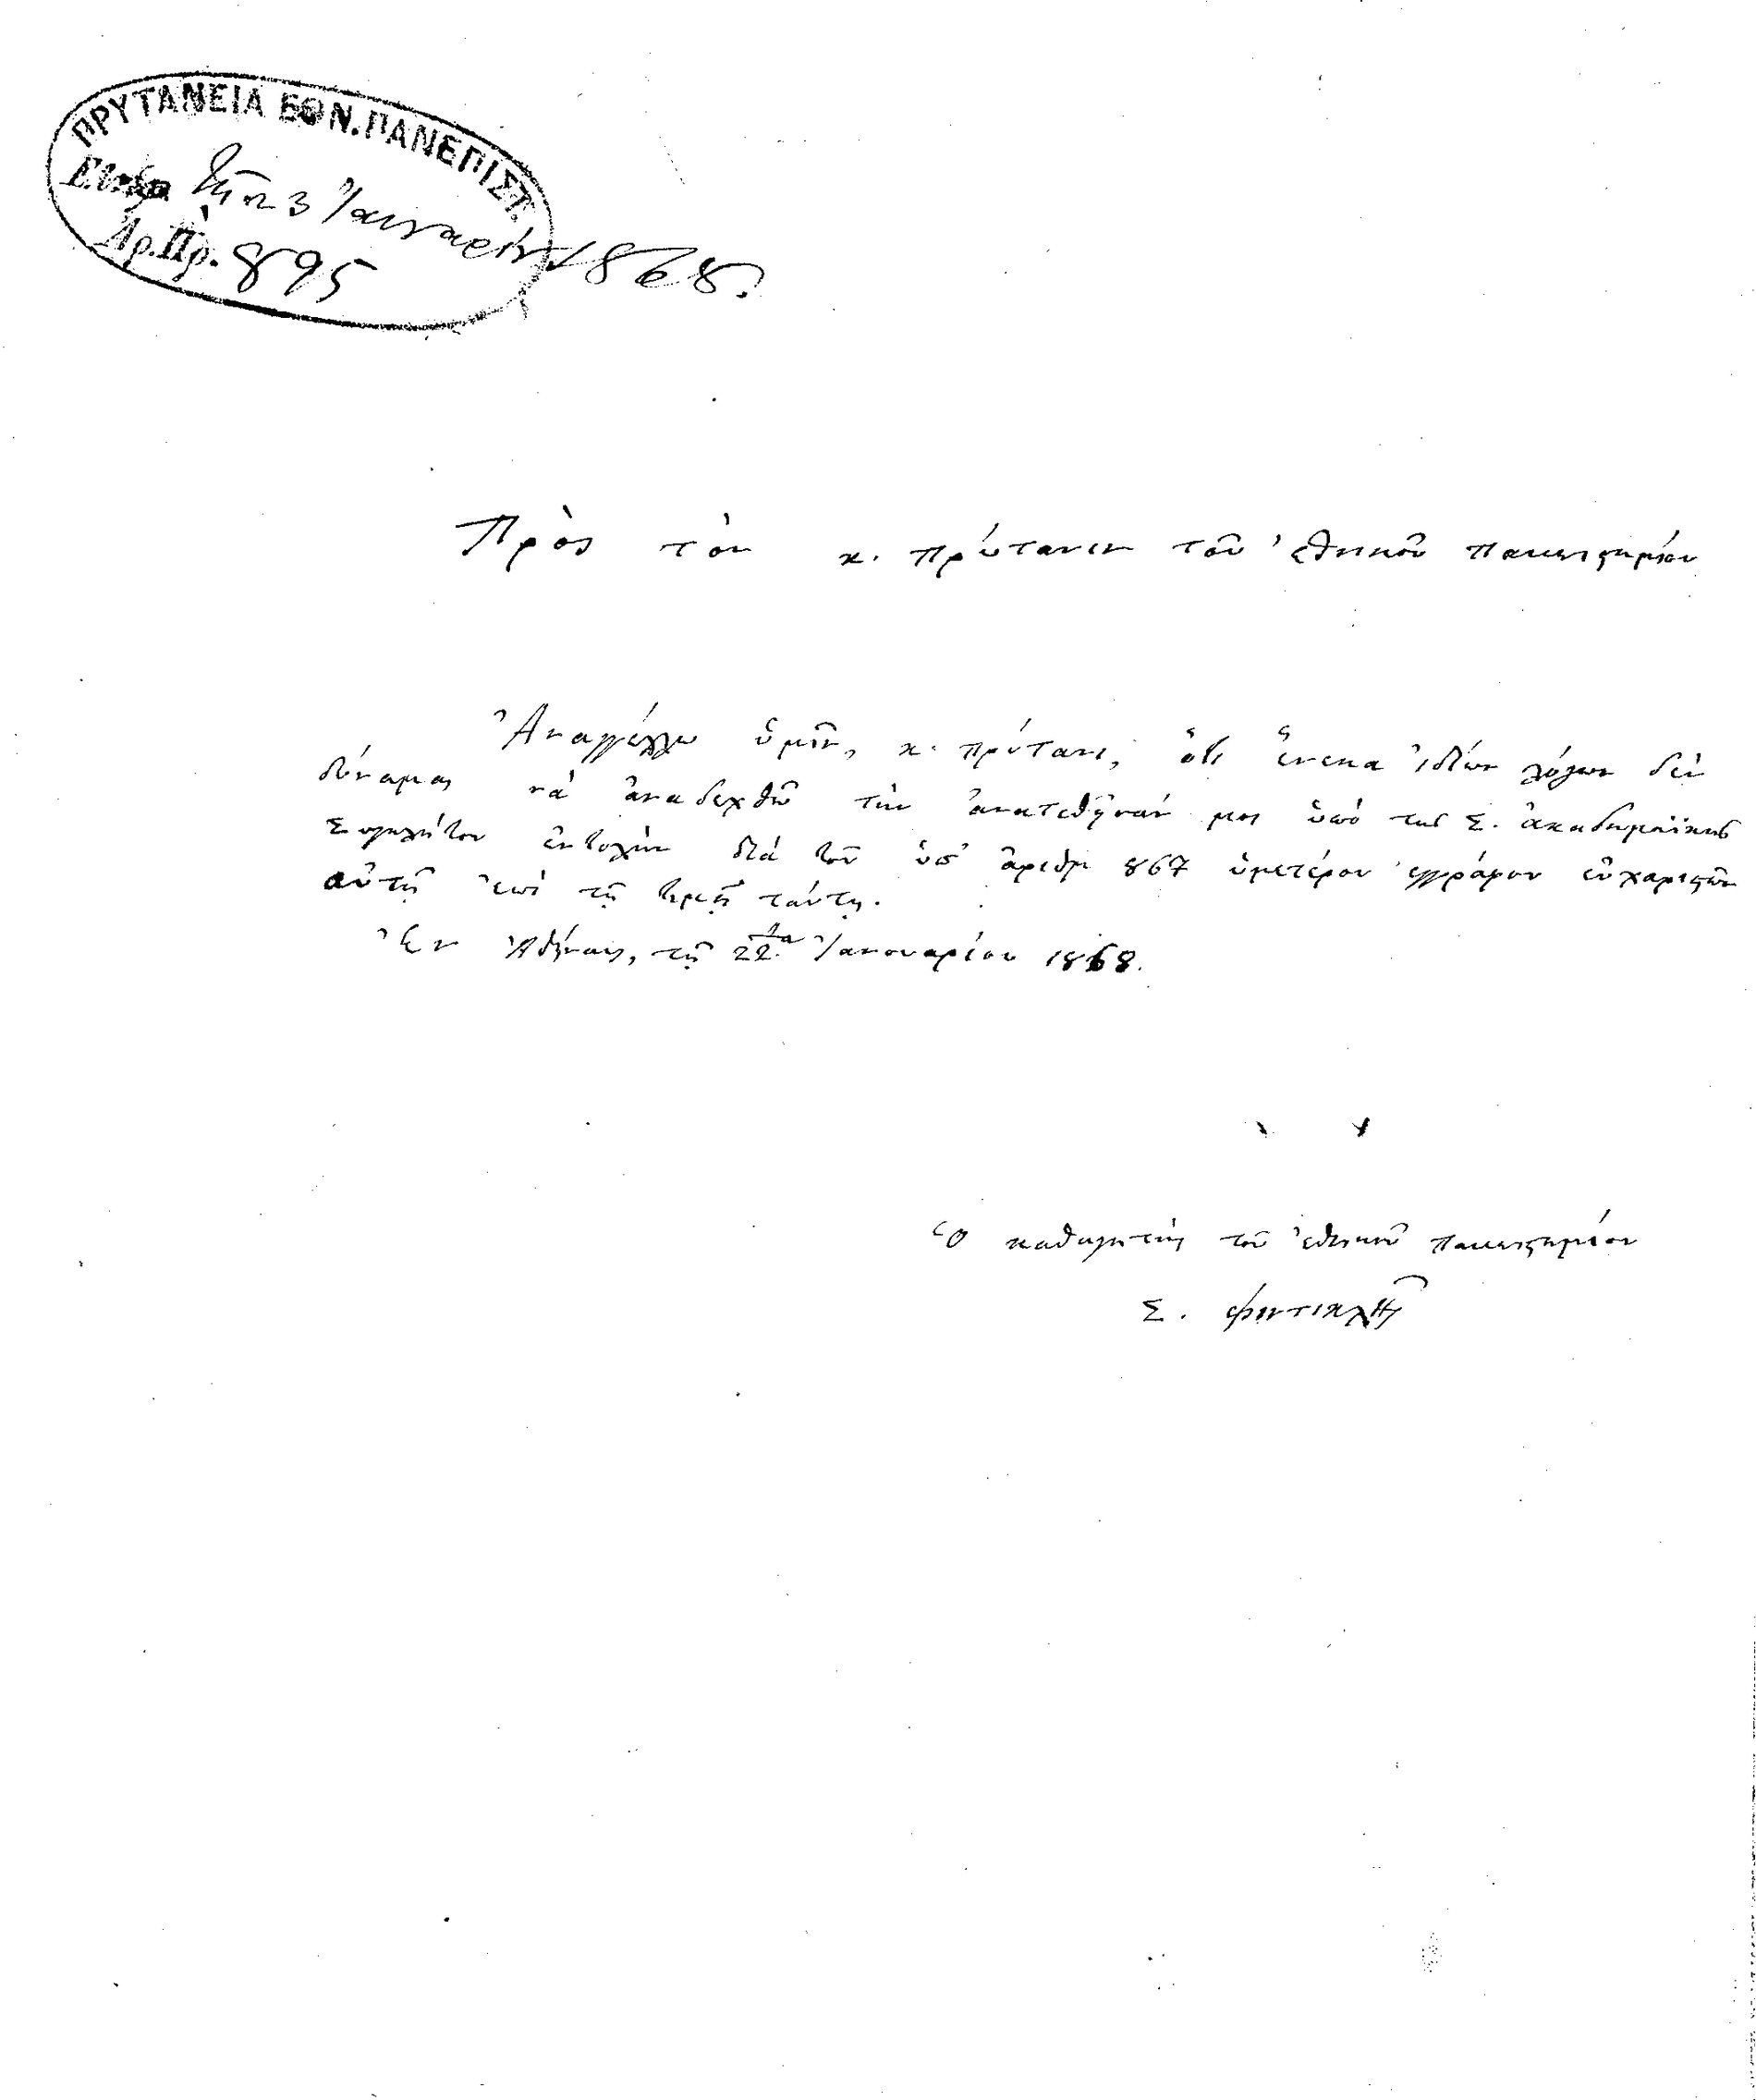 ΠΡΥΤΑΝΕΙΑ ΕΘΝ. ΠΑΝΕΠΙΣΤ.
τῇ 23 Ἰανουαρίου 1868.
Ἀρ. Πρ. 895
Πρὸς τὸν κ. πρύτανιν τοῦ ἐθνικοῦ πανεπιστημίου
Ἀναγγέλλω ὑμῖν, κ. πρύτανι, ὅτι ἕνεκα ἰδίων λόγων δὲν
δύναμαι νὰ ἀναδεχθῶ τὴν ἀνατεθῆσάν μοι ὑπὸ τῆς Σ. ἀκαδημαϊκῆς
Συγκλήτου ἐντολὴν διὰ τοῦ ὑπ' ἀριθμ 867 ὑμετέρου ἐγγράφου εὐχαριστῶν
αὐτῇ ἐπὶ τῇ τιμῇ ταύτῃ.
Ἐν Ἀθήναις, τῇ 22 Ἰανουαρίου 1868.
Ὁ καθηγητὴς τοῦ ἐθνικοῦ πανεπιστημίου
Σ. Φιντικλῆς